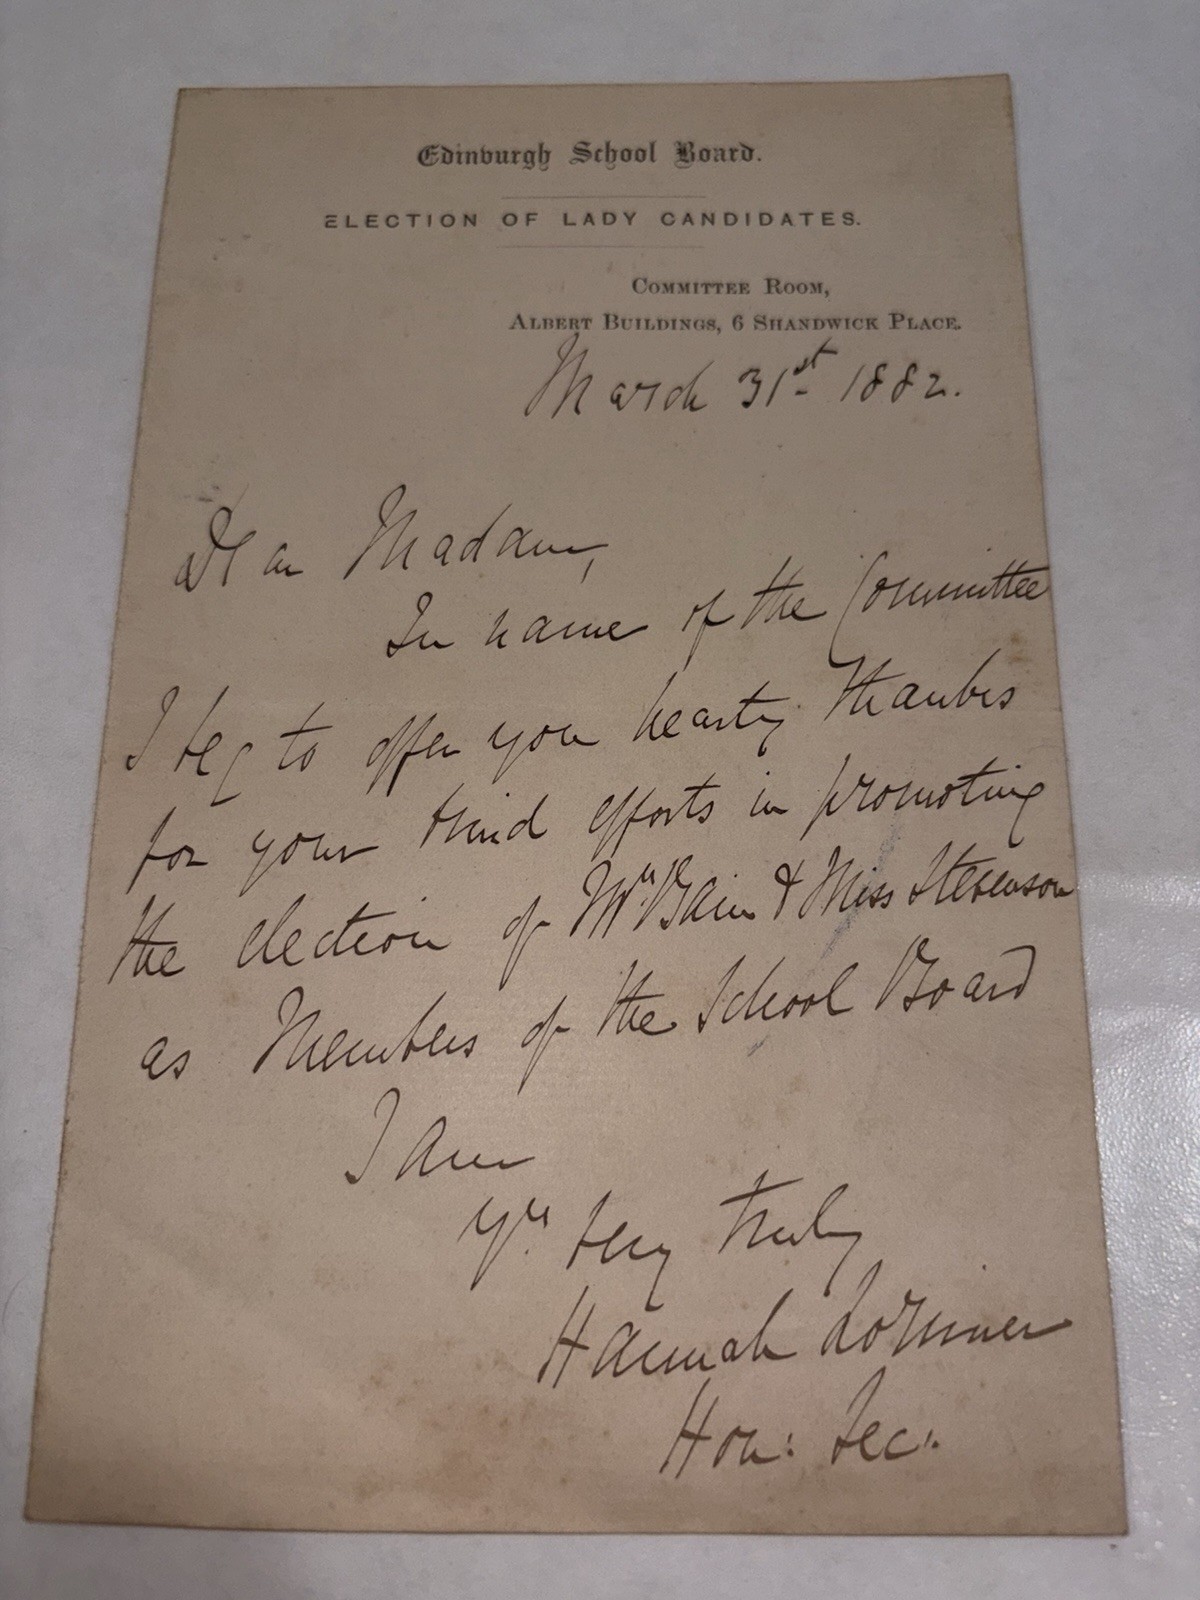 Edinburgh School Board.
ELECTION OF LADY CANDIDATES.
COMMITTEE ROOM,
ALBERT BUILDINGS, 6 SHANDWICK PLACE.
March 31st 1882.
Dear Madam,
In name of the Committee
I beg to offer you hearty thanks
for your kind efforts in promoting
the election of Mrs. Bain & Miss Stevenson
as Members of the School Board
I am
Yrs. very truly
Hannah Lorimer
Hon: Sec: